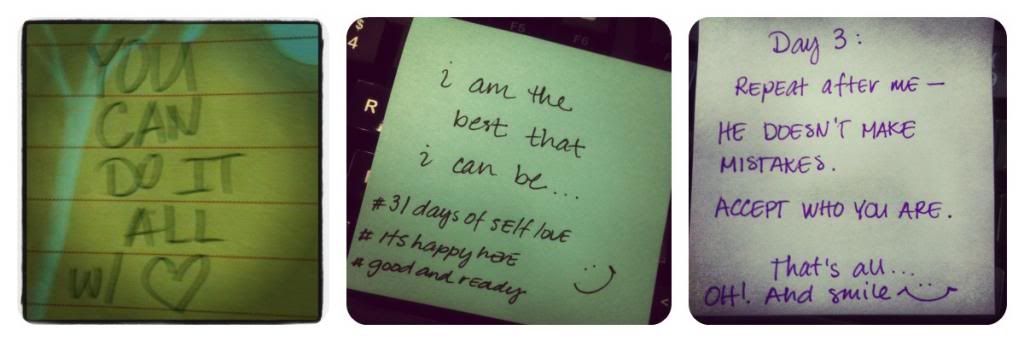 YOU
CAN
DO IT
ALL
w/ ♡
$
4
R
F5
F6
i am the
best that
i can be...
#31 days of self love
# its happy here
# good and ready
Day 3:
Repeat after me —
HE DOESN'T MAKE
MISTAKES.
ACCEPT WHO YOU ARE.
That's all...
OH! And smile